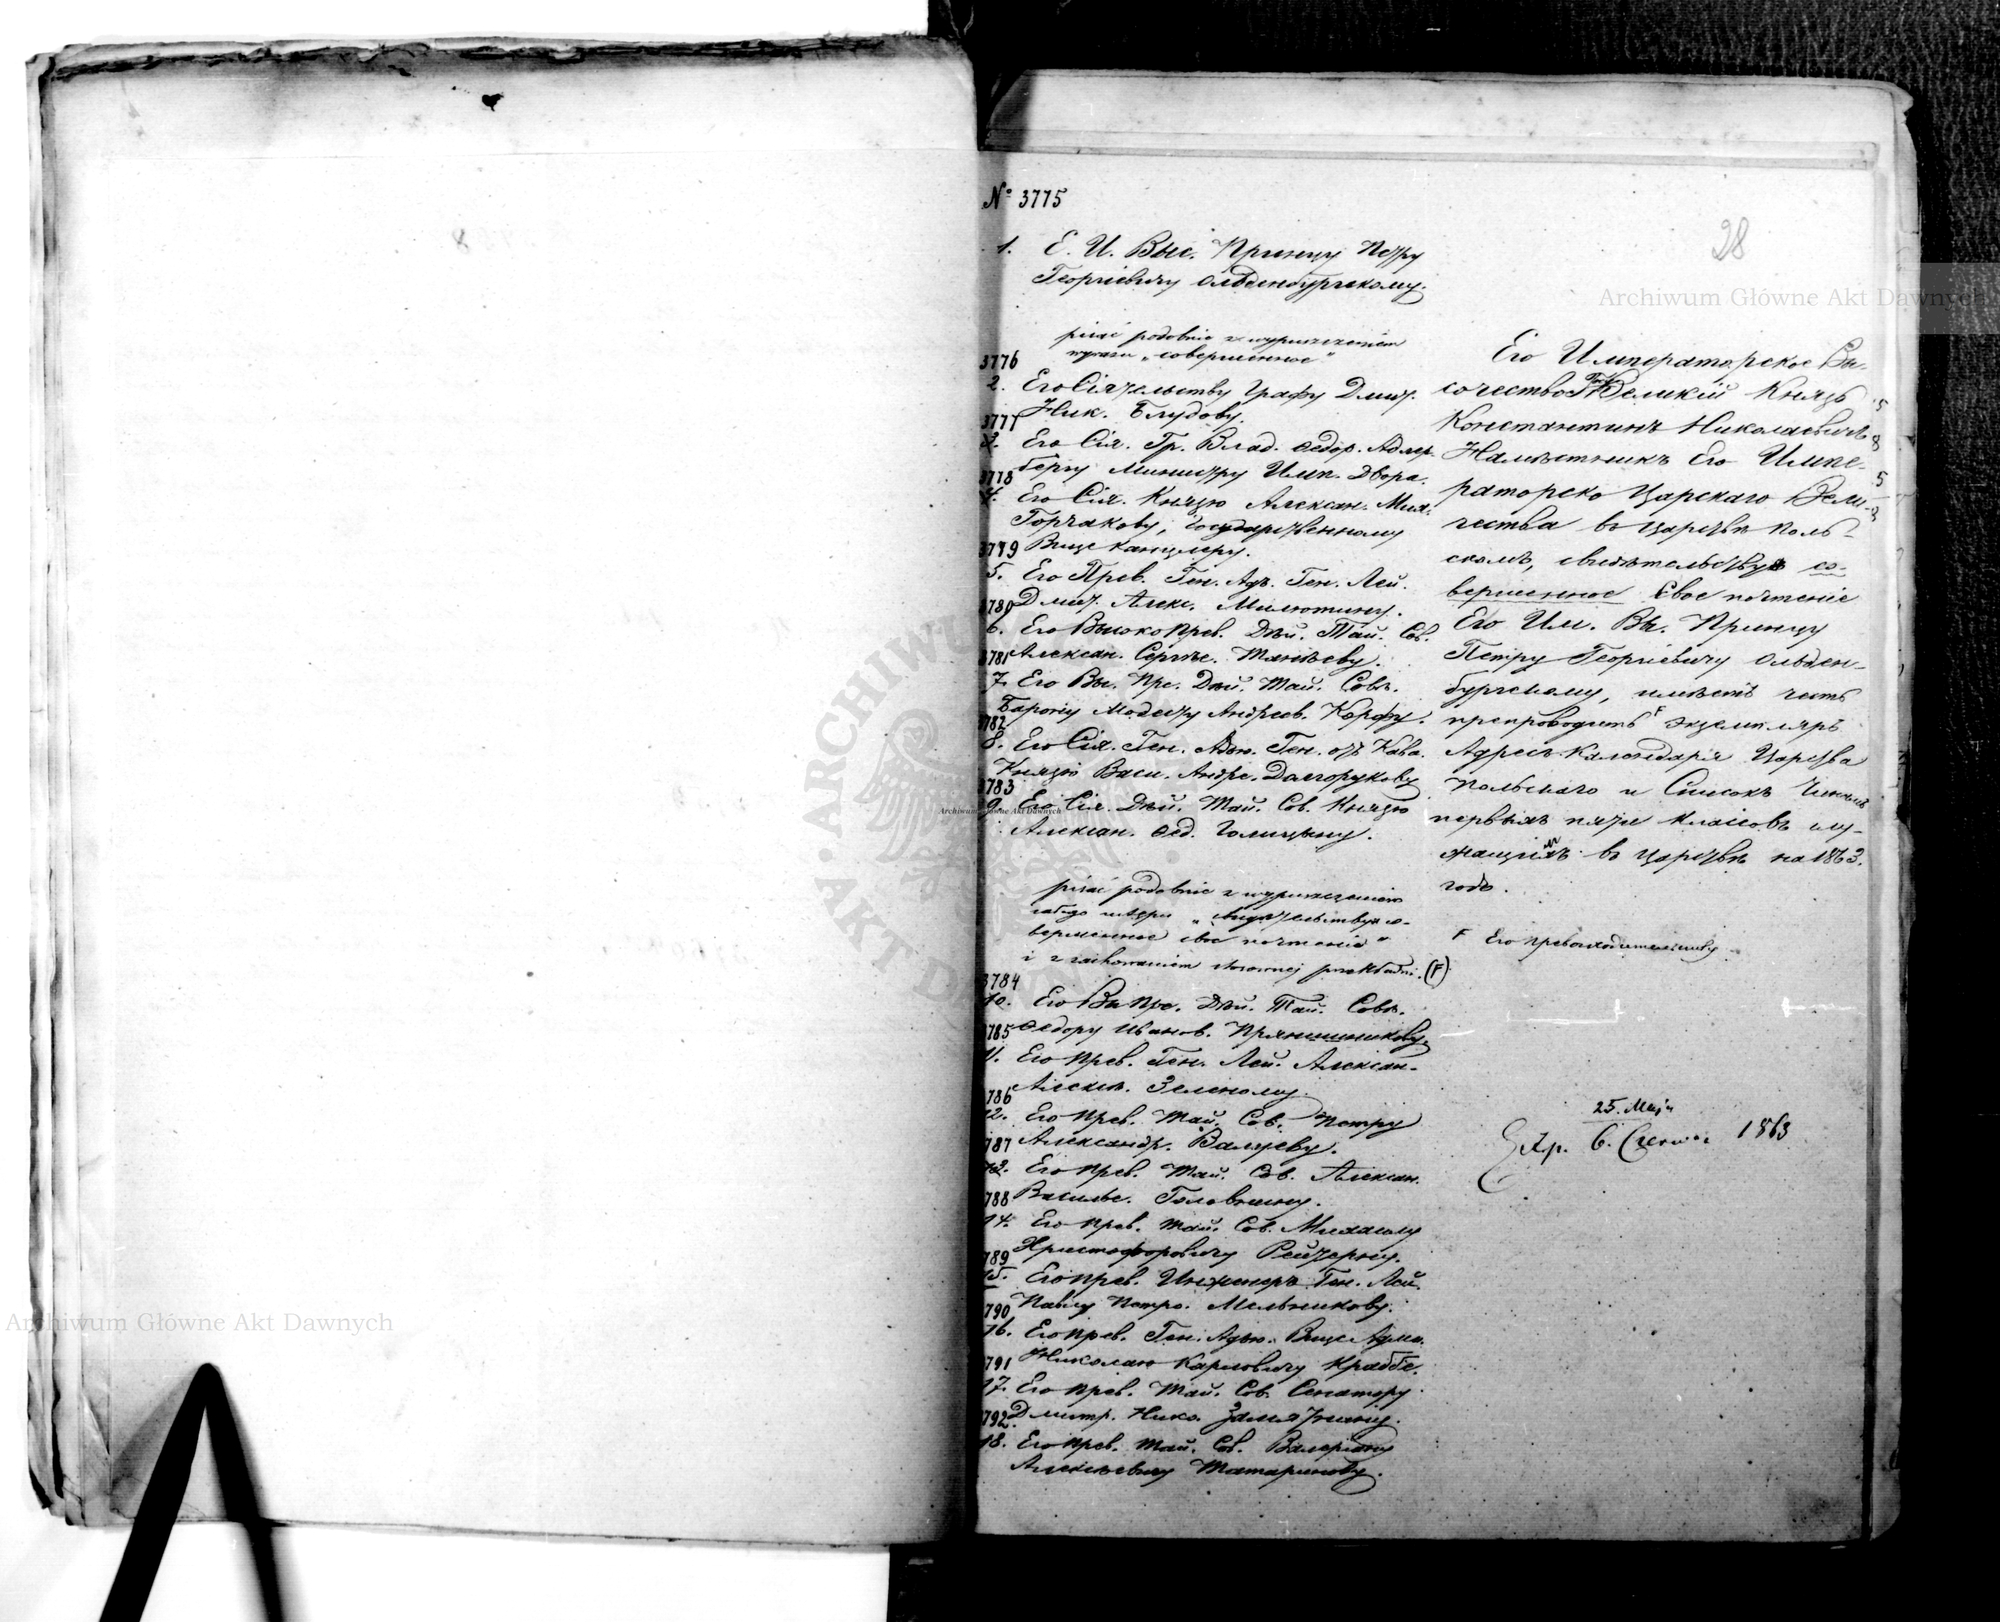 № 3775
28
1. Е. И. Выс. Принцу Петру
Георгіевичу Ольденбургскому.
pisać podobnie z wypuszczeniem
wyrazu „совершенное"
3776
2. Его Сіятельству Графу Дмит.
Ник. Блудову.
3777
3. Его Сія. Гр. Влад. Ѳедор. Адлер-
бергу Министру Имп. Двора.
3778
4. Его Сія. Князю Алексан. Мих.
Горчакову, Государственному
Вице Канцлеру.
3779
5. Его Прев. Ген. Ад. Ген. Лей.
Дмит. Алекс. Милютину.
3780
6. Его Высокопрев. Дѣй. Тай. Сов.
Алексан. Сергѣе. Танѣеву.
3781
7. Его Вы. Пре. Дѣй. Тай. Совѣ.
Барону Модесту Андреев. Корфу.
3782
8. Его Сія. Ген. Адъю. Ген. отъ Кава.
Князю Васи. Андре. Долгорукову
3783
9. Его Сія. Дѣй. Тай. Сов. Князю
Алексан. Ѳед. Голицыну.
pisać podobnie z wypuszczeniem
całego ustępu „свидѣтельствуя со-
вершенное свое почтеніе"
i z zachowaniem stosownej przekładni. (F)
3784
10. Его Вы Пре. Дѣй. Тай. Совѣ.
Ѳедору Иванов. Прянишникову.
785
11. Его Прев. Ген. Лей. Алексан-
Алексѣ. Зеленому.
786
12. Его Прев. Тай. Сов. Петру
Александр. Валуеву.
787
13. Его Прев. Тай. Сов. Алексан.
Василье. Головнину.
788
14. Его Прев. Тай. Сов. Михаилу
Христофоровичу Рейтерну.
789
15. Его Прев. Инженеръ Ген. Лей.
Павлу Петро. Мельникову.
790
16. Его Прев. Ген. Адъю. Вице Адми.
Николаю Карловичу Краббе.
791
17. Его Прев. Тай. Сов. Сенатору
Дмитр. Нико. Замятнину.
792
18. Его Прев. Тай. Сов. Валеріану
Алексѣевичу Татаринову.
Его Императорское Вы-
сочество Великій Князь
Константинъ Николаевичъ
Намѣстникъ Его Импе-
раторско Царскаго Вели-
чества въ Царствѣ Поль-
скомъ, свидѣтельствуя со-
вершенное Свое почтеніе
Его Им. Вы. Принцу
Петру Георгіевичу Ольден-
бургскому, имѣетъ честь
препроводить F экземпляръ
Адресъ-Календаря Царства
Польскаго и Списокъ Чинамъ
первыхъ пяти классовъ слу-
жащимъ въ Царствѣ на 1863.
годъ.
F Его Превосходительству
25. Maja
Exp. 6. Czerwca 1863
Archiwum Główne Akt Dawnych
Archiwum Główne Akt Dawnych
Archiwum Główne Akt Dawnych